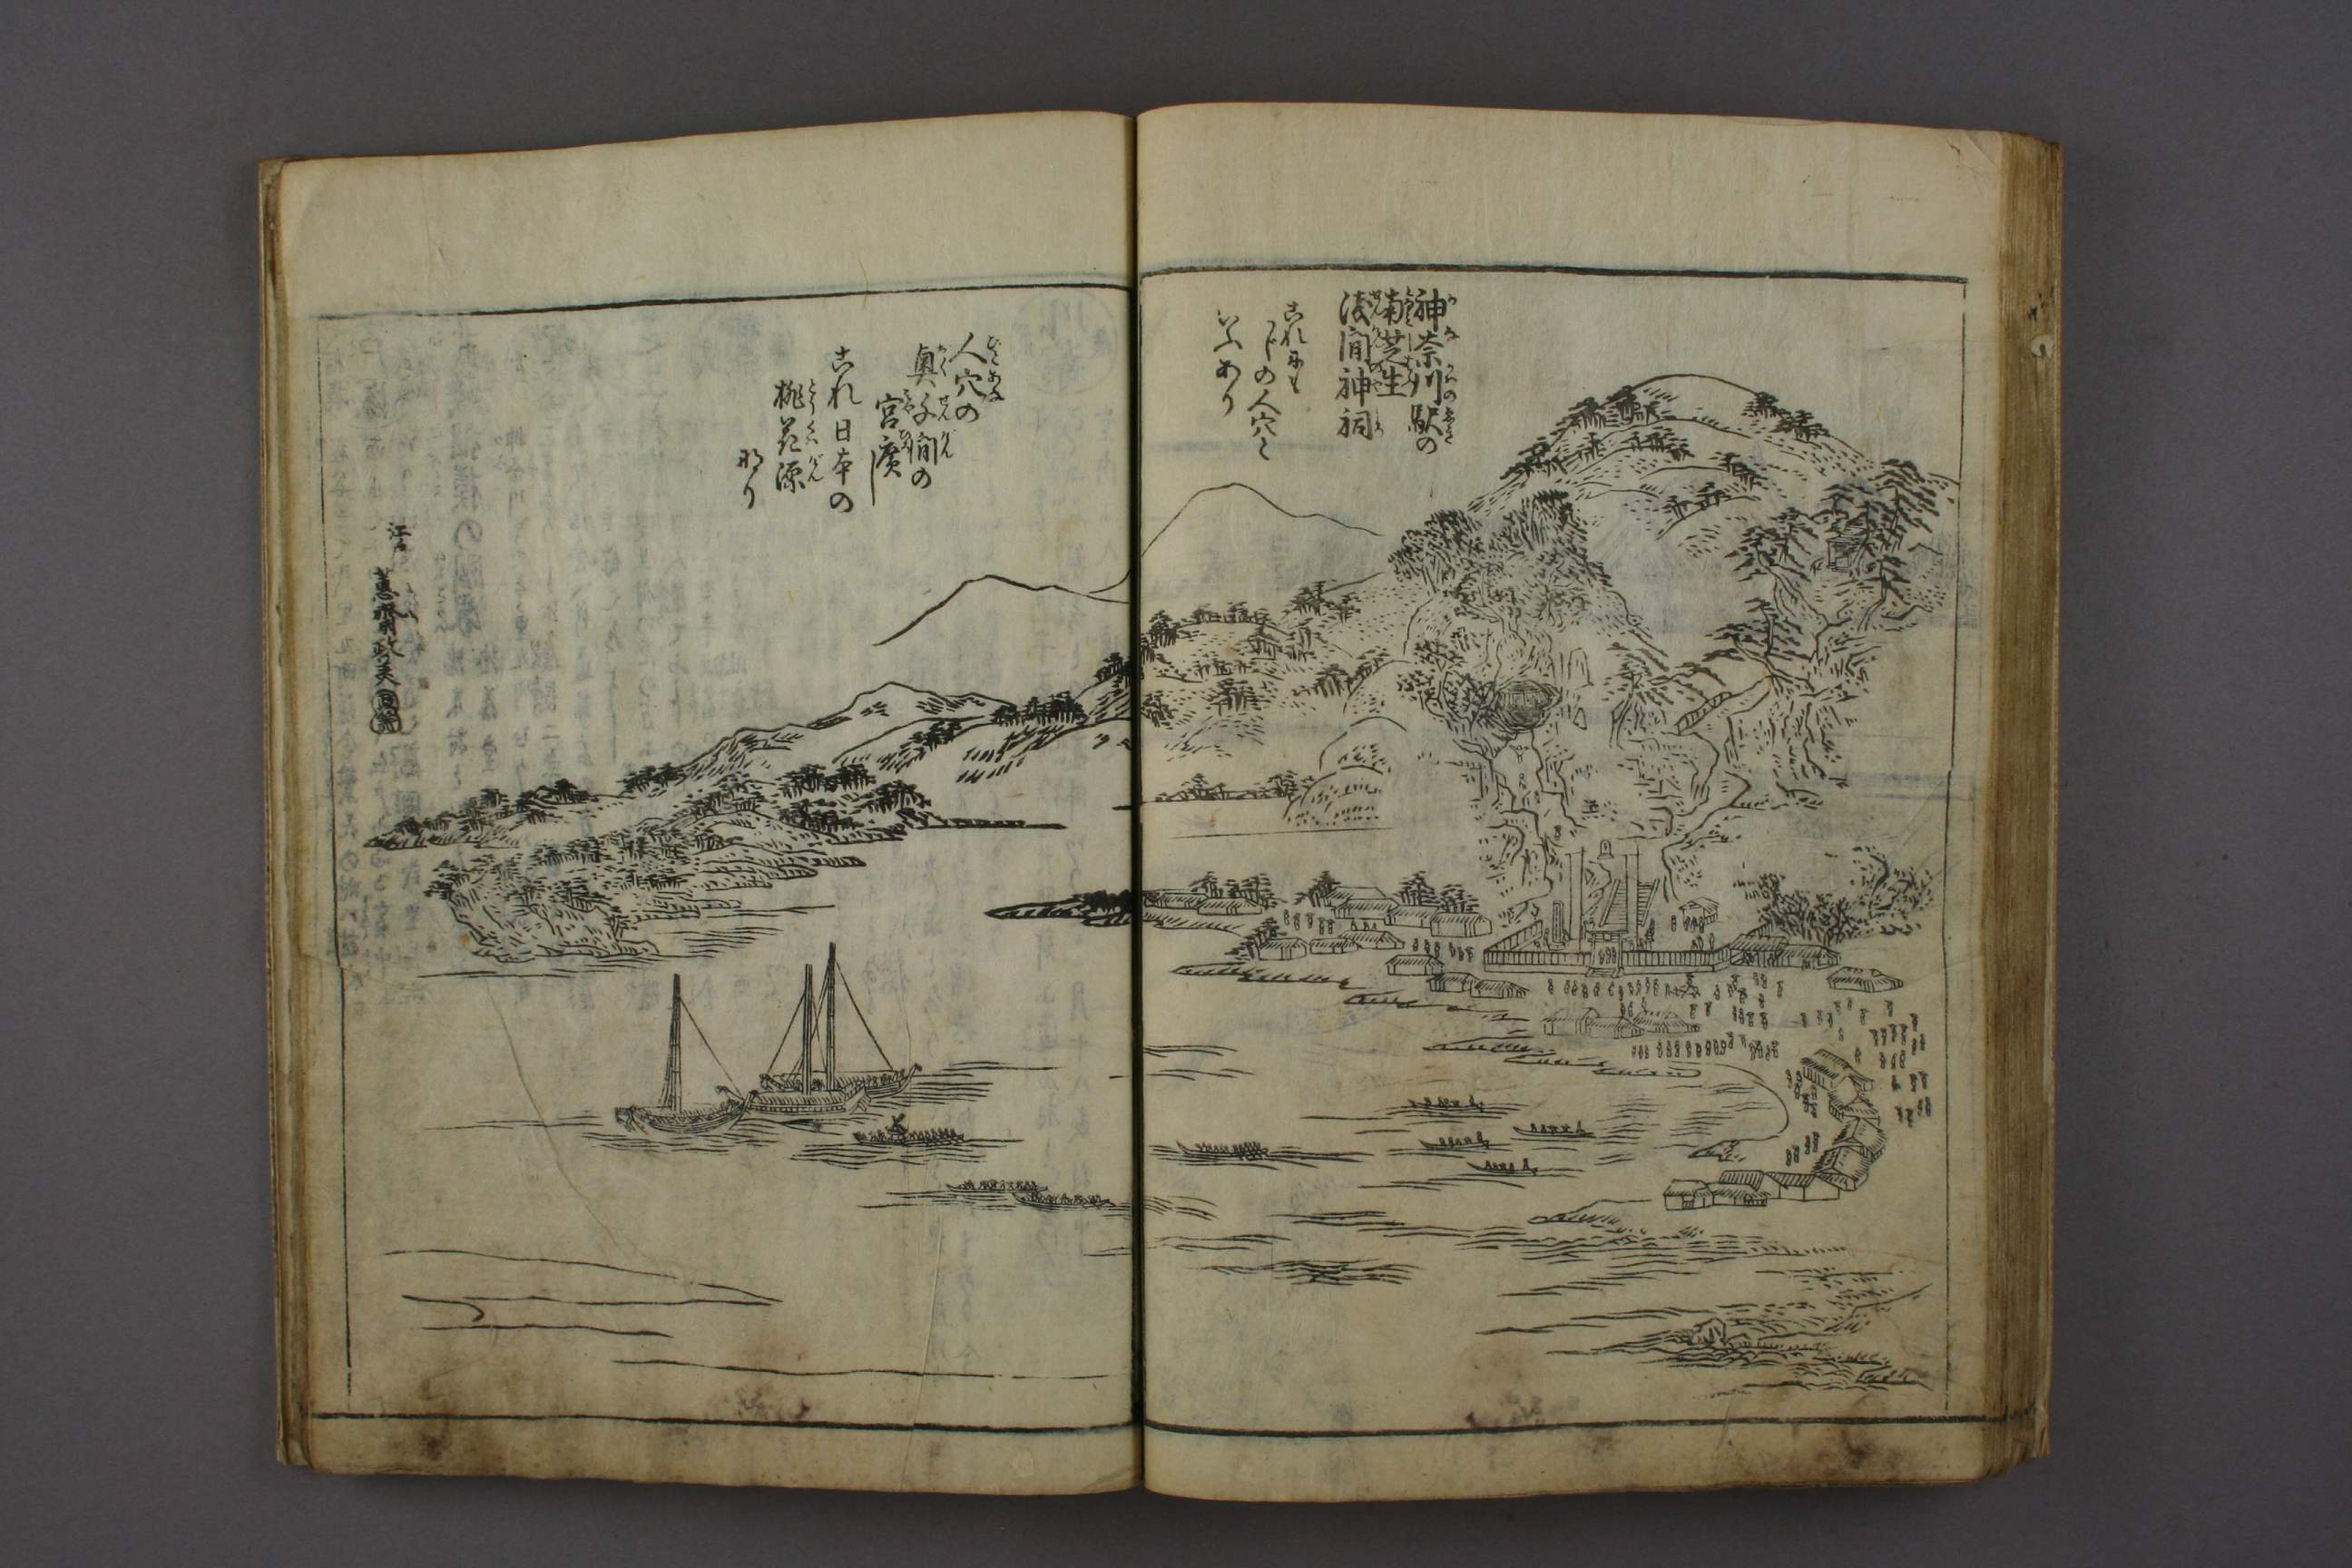 神奈川駅の
南芝生
浅間神祠
これにも
ふじの人穴と
いふあり
人穴の
奥千間の
宮廣し
これ日本の
桃花源
なり
江戸
蕙齋政美